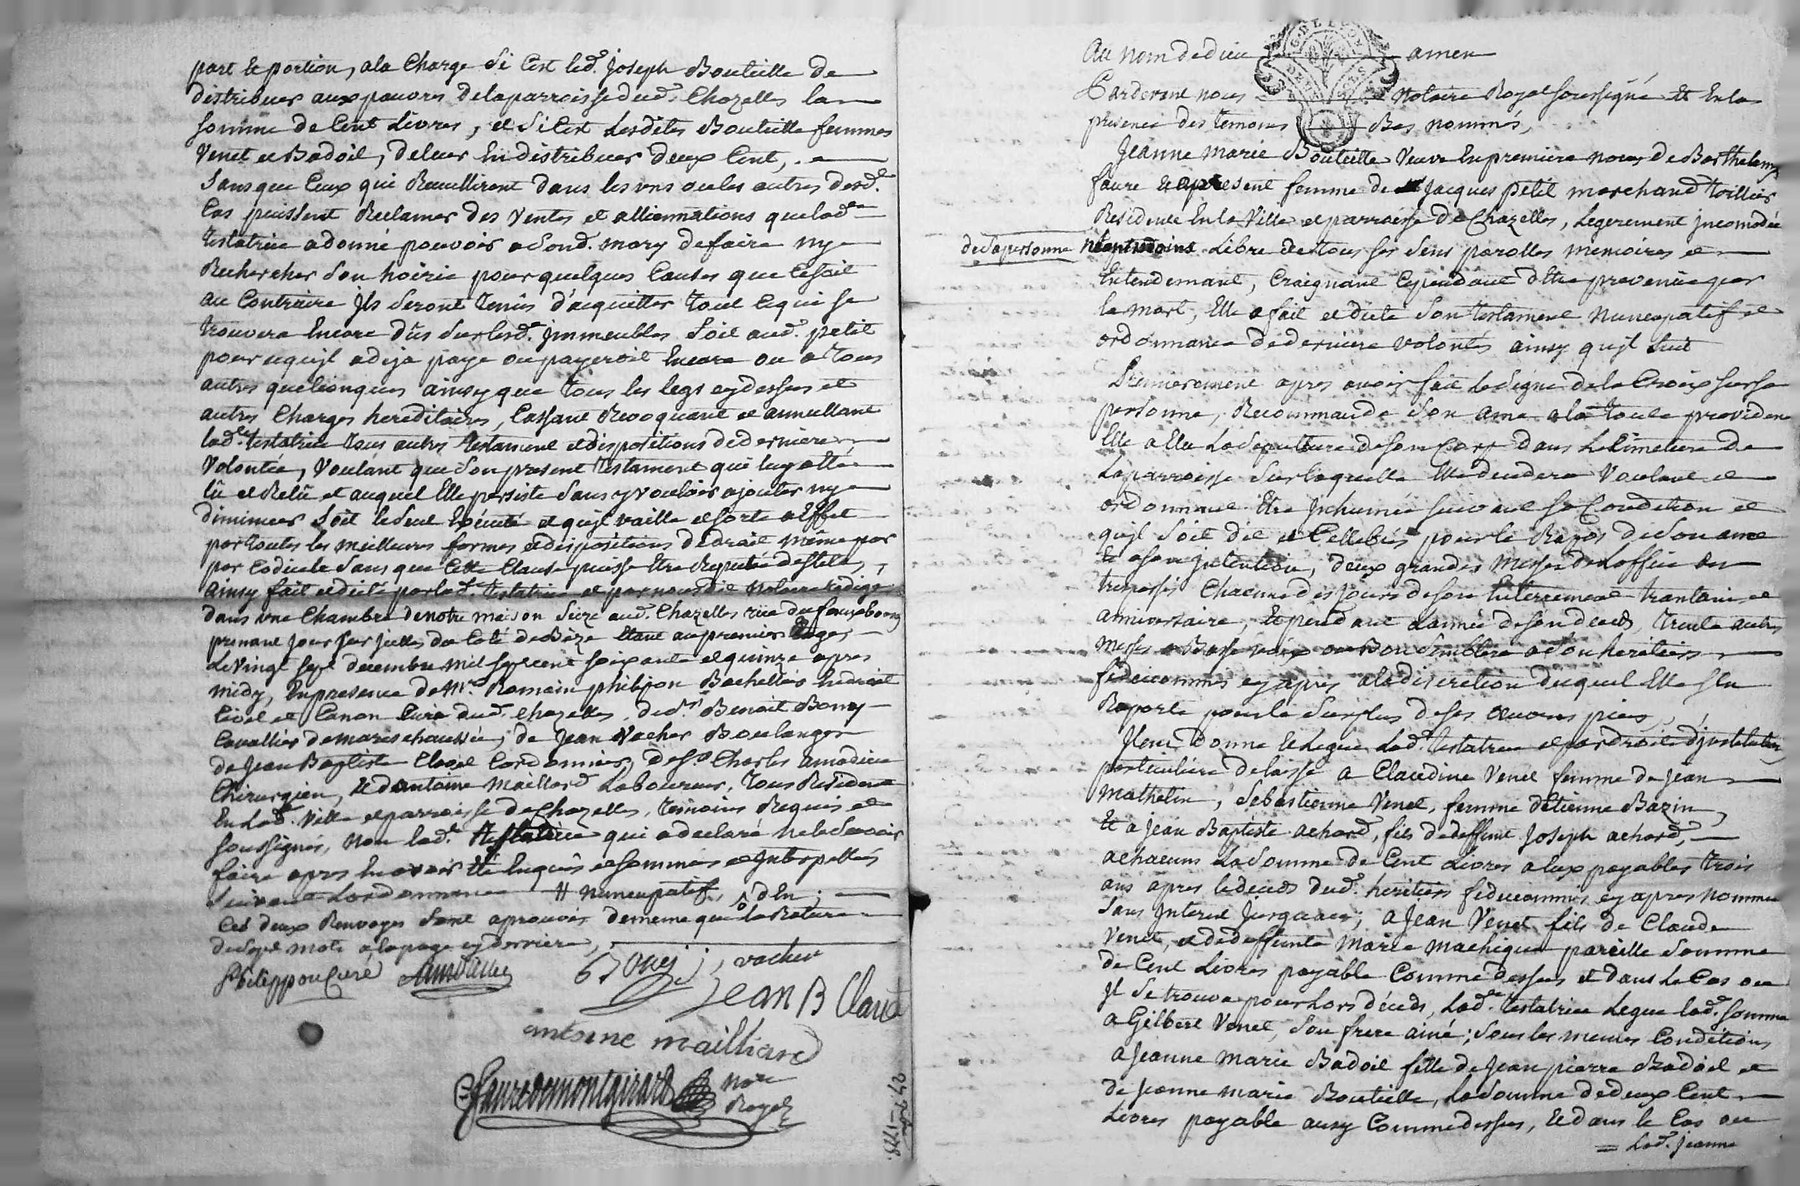 part et portion, ala Charge Si Cest led. Joseph Bouteille de
distribuer aux pauvres delaparroisse dud. Chazelles la
Somme de Cent Livres, et Si Cest Lesdites Bouteille femmes
Venet et Badoil, deleur En distribuer deux Cent,
Sans que Ceux qui Recuilliront dans les uns ou les autres desd.
Cas puissent Reclamer des Ventes et alliennations que lad.
testatrice a donné pouvoir a Sond. mary de faire ny
Rechercher Son hoirie pour quelques Causes que Cesoit
au Contraire Jls Seront tenus d'acquitter tout Cequi Se
trouvera Encore dûs Sur lesd. Jmmeubles Soit aud. petit
pour ce qujl a deja payé ou payeroit Encore ou a tous
autres quelconques ainsy que tous les legs cydessus et
autres Charges hereditaires, Cassant Revoquant et annullant
lad. testatrice tous autres testament et dispositions de derniere
Volontée, Voulant que Son present testament qui luy a été
lû et Relû et auquel Elle persiste Sans y vouloir ajouter ny
diminuer Soit le Seul Executé et qujl vaille et Sorte a Effet
par toutes les meilleures formes et dispositions de droit même par
par Codicile Sans que Cette Clause puisse Etre Reputée de Stile,
ainsy fait et dicté par lad. testatrice et par nousdit Notaire Redigé
dans une Chambre de notre maison Size aud. Chazelles rue du fauxbourg
prenant jour Sur Jcelles du Coté de Bize Etant au premier Etage,
Le Vingt Sept decembre mil Sept cent Soixante et quinze apres
midy, En presence de Mr. Romain philippon Bachellier En droit
Civil et Canon Curé dud. Chazelles, de Sr. Benoit Bonny
Cavallier de marechaussée, de Jean Vacher Boulanger
de Jean Baptiste Clavel Cordonnier, de Sr. Charles amodieu
Chirurgien, et d'antoine Maillard Laboureur, tous Residents
En lad. Ville et parroisse de Chazelles, temoins Requis et
Soussignés, Non lad. testatrice qui a declaré ne le Savoir
faire apres En avoir Eté Enquise et Sommée et Jnterpellée
Suivant Lordonnance // nuncupatif, d En,
Ces deux Renvoyes Sont aprouvés de meme que la Rature
de Sept mots a la page cy derriere,
Philippon Curé
Bonnÿ
vacher
Jean B Clavel
antoine mailliard
Faure de montgirard Nore
Royal
27 xbre 1775
Au nom de dieu amen
Pardevant nous Notaire Royal Soussigné Et En la
presence des temoins Bas nommés,
Jeanne Marie Bouteille Veuve En premiere noces de Barthelemy
faure et apresent femme de Jacques petit marchand toillier
Residente En la Ville et parroisse de Chazelles, Legerement jncomodée
de Sa personne neantmoins Libre de tous Ses Sens parolles memoires et
Entendement, Craignant Cependant d'Etre prevenüe par
la mort, Elle a fait et dicté Son testament Nuncupatif et
ordonnance de derniere volontés ainsy qujl Suit
Premierement apres avoir fait Le Signe de la Croix Sur Sa
personne, Recommandé Son ame a la toute providence
Elle a Elu La Sepulture de Son Corps dans Le Cimetiere de
La parroisse Sur laquelle Elle decedera Voulant et
ordonnant Etre Jnhumée Suivant Sa Condition et
qujl Soit dit et Cellebré pour le Repos de Son ame
Et a Son jntention, deux grandes Messes de Loffice des
trepassés Chacune des jours de Son Enterrement trantain et
anniversaire, Et pendant Lannée de Son deceds, trente autres
Messes a Basse voix
fideicommis cy apres a la discretion duquel Elle S'en
Raporte pour le Surplus de Ses œuvres pies,
Jtem donne et Legue Lad. testatrice et par droit d'jnstitution
particuliere delaisse a Claudine Venet femme de Jean
Mathelin, Sebastienne Venet, femme d'Etienne Bazin,
Et a Jean Baptiste achard, fils de deffunt Joseph achard,
a chacuns La Somme de Cent Livres a Eux payables trois
ans apres le deceds dud. heritier fideicommis cy apres nommé
Sans Jnteret Jusqualors; a Jean Venet fils de Claude
Venet, et de deffunte Marie Machiquet pareille Somme
de Cent Livres payable Comme dessus et dans Le Cas ou
Jl Se trouva pour Lors décedé, Lad. testatrice Legue lad. Somme
a Gilbert Venet, Son frere ainé; Sous les memes Conditions
a Jeanne Marie Badoil fille de Jean pierre Badoil et
de Jeanne marie Bouteille, La Somme de deux Cent
Livres payable aussy Comme dessus, Et dans le Cas ou
= Lad. Jeanne